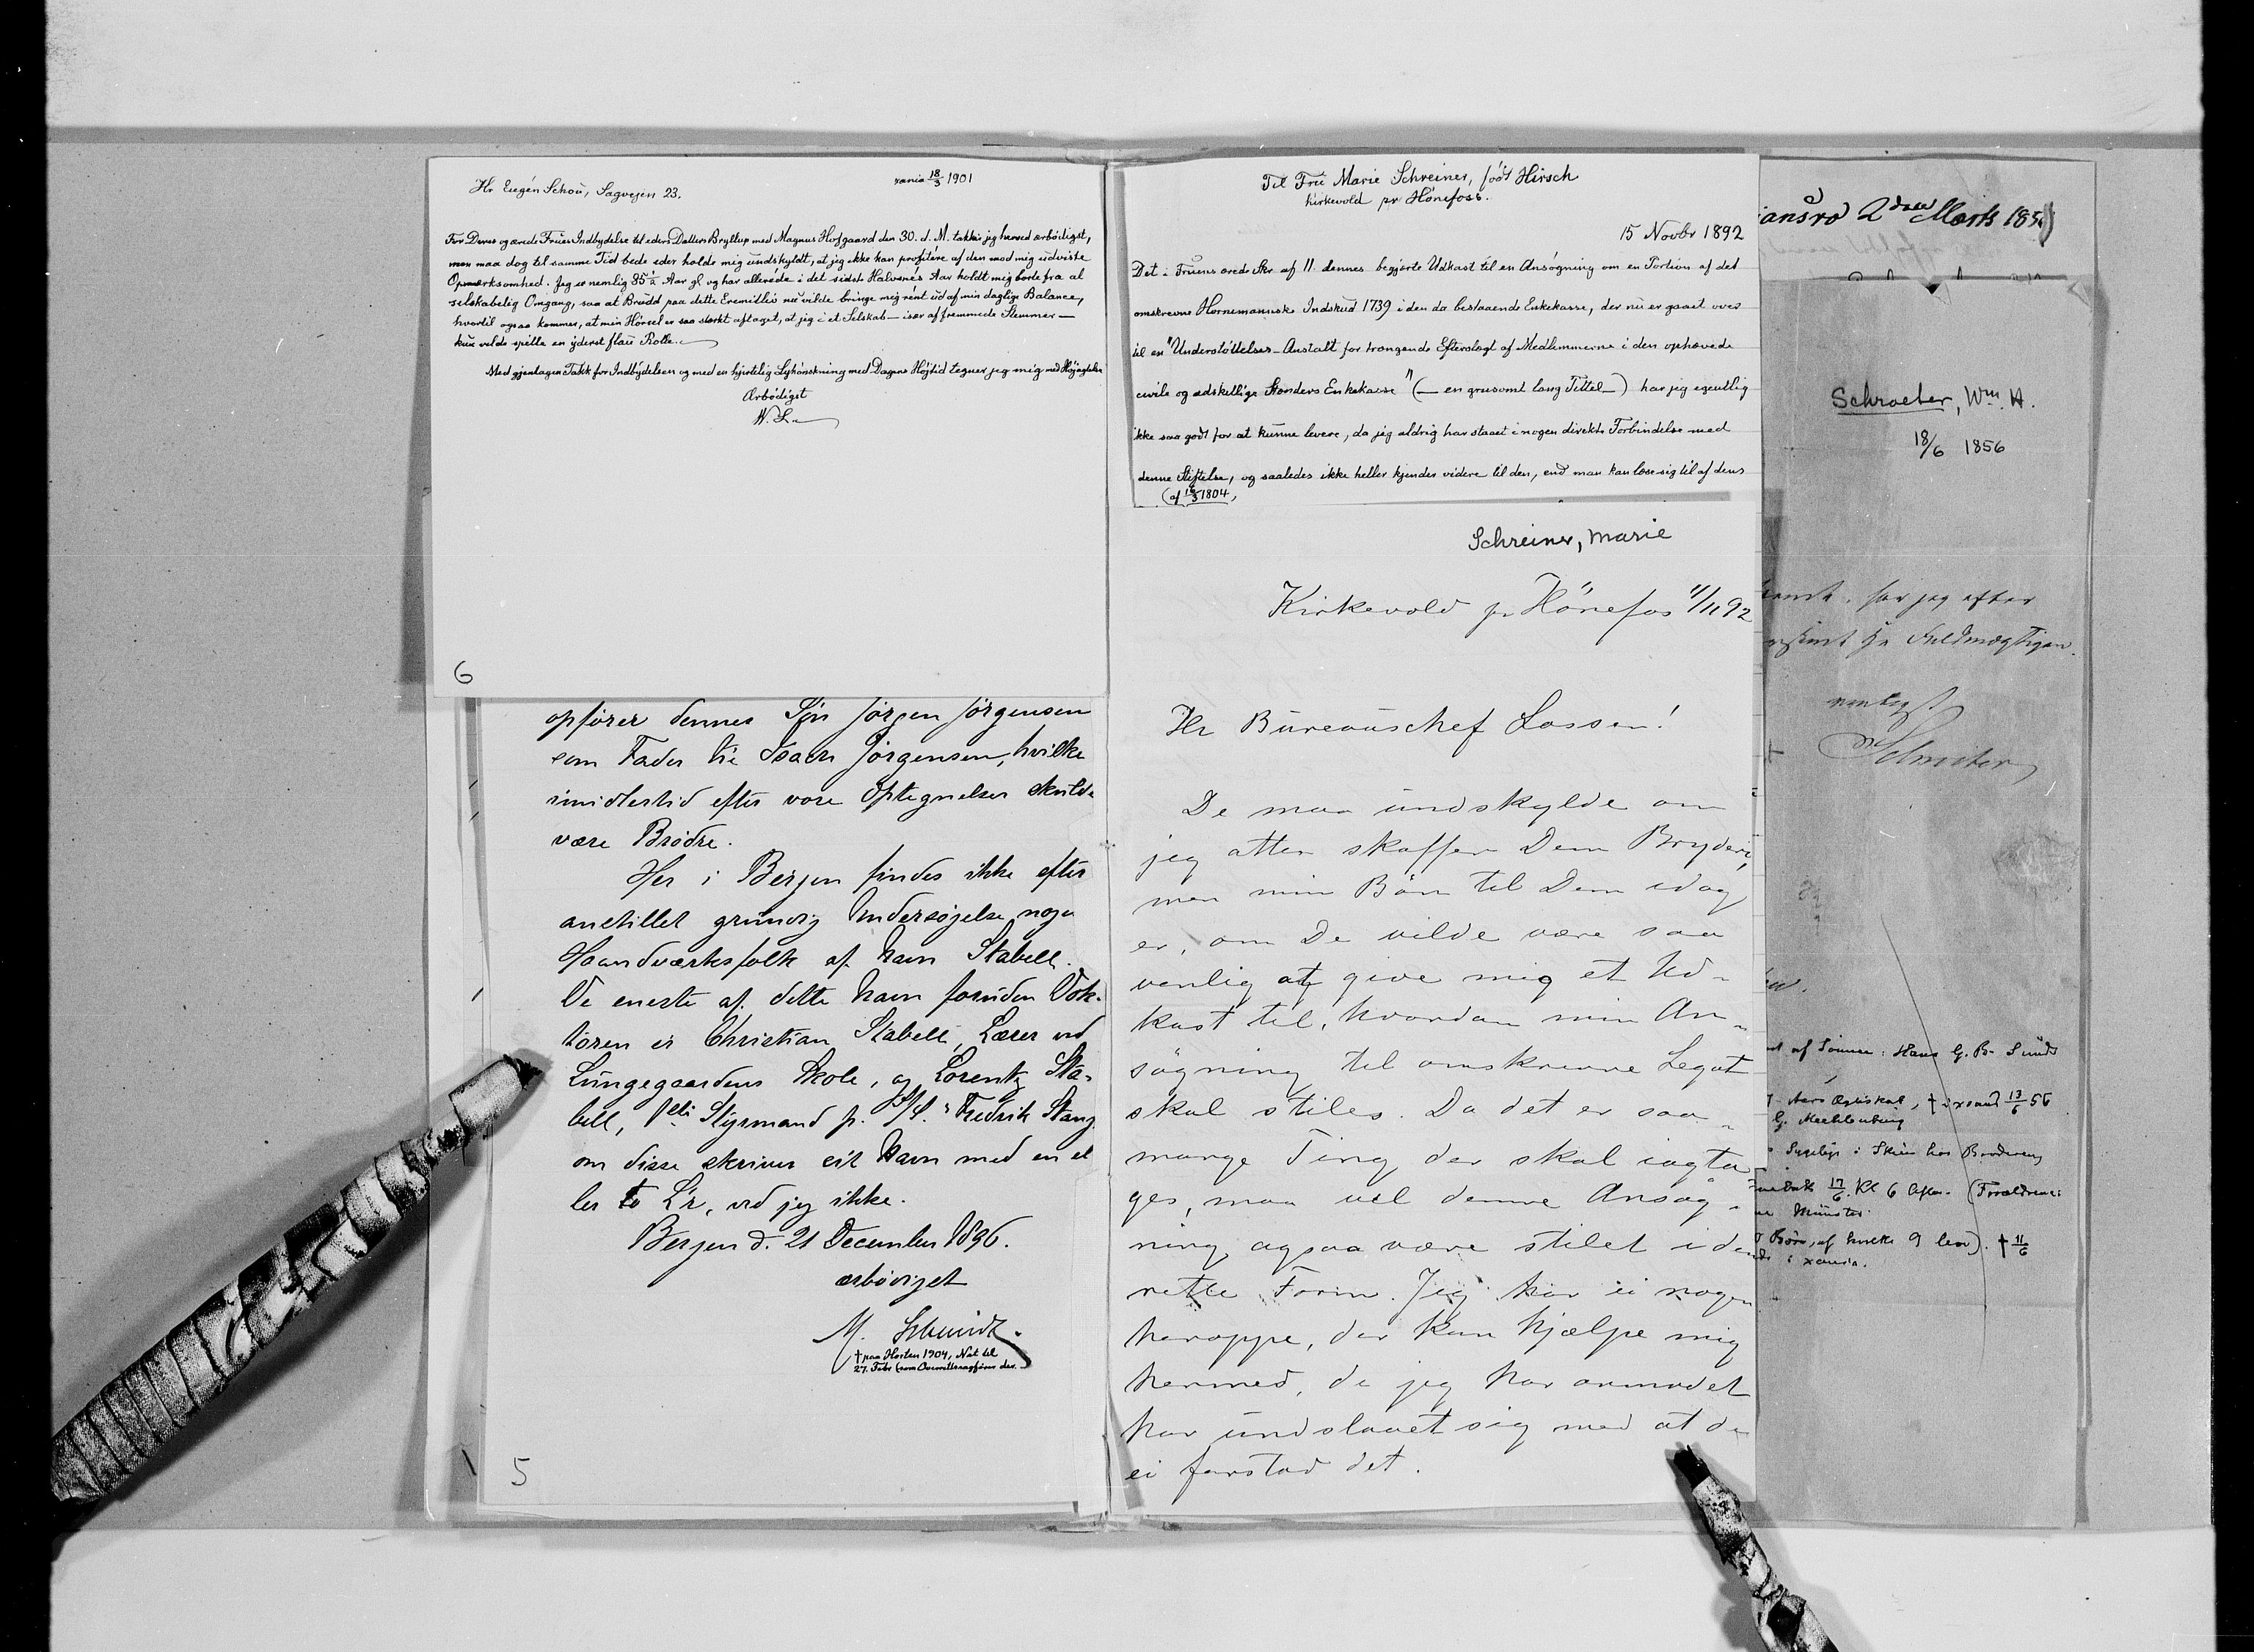 Hr Eugén Schou, Sagvejen 23.
xania 18/3 1901
For Deres og ærede Frues Indbydelse til eders Datters Bryllup med Magnus Hofgaard den 30. d. M. takker jeg herved ærbödigst,
men maa dog til samme Tid bede eder holde mig undskyldt, at jeg ikke kan profitére af den mod mig udviste
Opmærksomhed. Jeg er nemlig 85½ Aar gl. og har allerede i det sidste Halvsnés Aar holdt mig borte fra al
selskabelig Omgang, saa at Brudd paa dette Eremitliv nu vilde bringe mig rént ud af min daglige Balance,
hvortil ogsaa kommer, at min Hörsel er saa stærkt aftaget, at jeg i et Selskab — især af fremmede Stemmer —
kun vilde spille en yderst flau Rolle.
Med gjentagen Takk for Indbydelsen og med en hjertelig Lykönskning med Dagens Höjtid tegner jeg mig med Höjagtelse
Ærbödigst
W. L.
6
opfører dennes Søn Jørgen Jørgensen
som Fader til Isach Jørgensen, hvilke
imidlertid efter vore Optegnelser skulde
være Brødre.
Her i Bergen findes ikke efter
anstillet grundig Undersøgelse noge
Haandværksfolk af Navn Stabell.
De eneste af dette Navn foruden Dok-
toren er Christian Stabell, Lærer ved
Lungegaardens Skole, og Lorentz Sta-
bell, Styrmand p. S/S. Fredrik Stang
om disse skriver sit Navn med en el
ler to L'r, ved jeg ikke.
Bergen d. 21 December 1896.
ærbødigst
M. Schmidt.
† paa Hosten 1904, Nat til
27. Febr (som Overretssagförer der.
5
Til Frü Marie Schreiner, född Hirsch
Kirkevold pr Hönefoss.
15 Novbr 1892
Det i Fruens ærede Skr. af 11. dennes begjærte Udkast til en Ansögning om en Portion af det
omskrevne Hornemannske Indskud 1739 i den da bestaaende Enkekasse, der nu er gaaet over
til en "Understöttelses-Anstalt for trængende Efterslægt af Medlemmerne i den ophævede
civile og adskillige Stænders Enkekasse" (— en grusomt lang Tittel —) har jeg egentlig
ikke saa godt for at kunne levere, da jeg aldrig har staaet i nogen direkte Forbindelse med
denne Stiftelse, og saaledes ikke heller kjender videre til den, end man kan læse sig til af dens
(af 16/3 1804,
Schreiner, Marie
Kirkevold pr Hönefos 11/11 92
Hr Bureauschef Lassen!
De maa undskylde om
jeg atter skaffer Dem Bryderi,
men min Bön til Dem idag
er, om De vilde være saa
venlig at give mig et Ud-
kast til, hvordan min An-
sögning til omskrevne Legat
skal stiles. Da det er saa
mange Ting der skal iagtta
ges, maa vel denne Ansög-
ning ogsaa være stilet i den
rette Form. Jeg har ei nogen
heroppe, der kan hjælpe mig
hermed, de jeg har anmodet
har undslaaet sig med at de
ei forstod det.
2den Marts
Schroeter, Wm. H.
18/6 1856
har jeg efter
Fuldmægtigen.
venligst
Schroeter
af Sönner: Hans G. B. Sundt
Aars Ægteskab, † i xsand 13/6 56
G. Mecklenburg
Sygeleje i Skien hos Broderen
17/6. Kl 6 (Forældrene:
Münster.
Börn, af hvilke 9 lever). † 11/6
i xania.